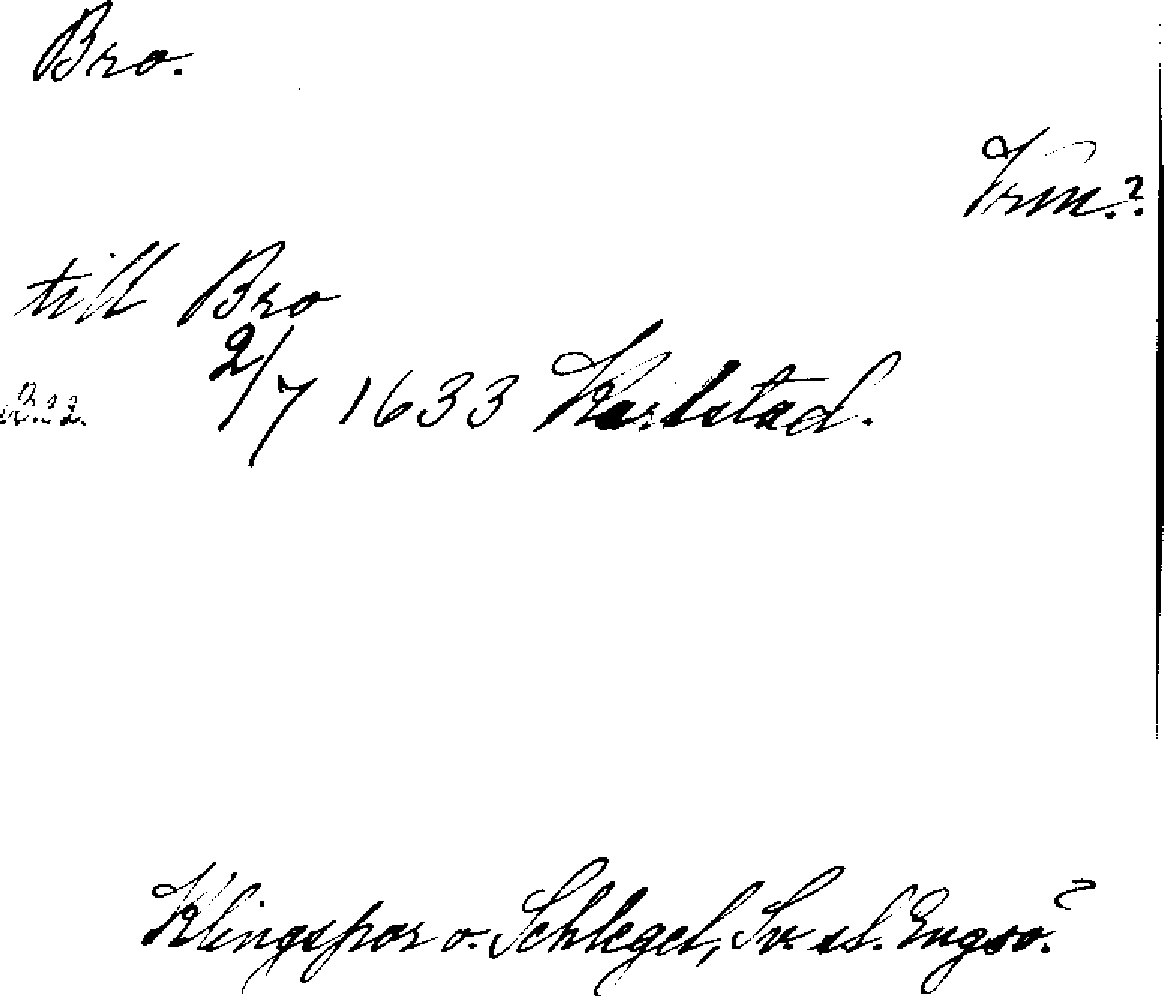 Bro.
Vrm.?
till Bro
2/7 1633 Karlstad.
Klingspor o. Schlegel, Sv. sl. Engsö?